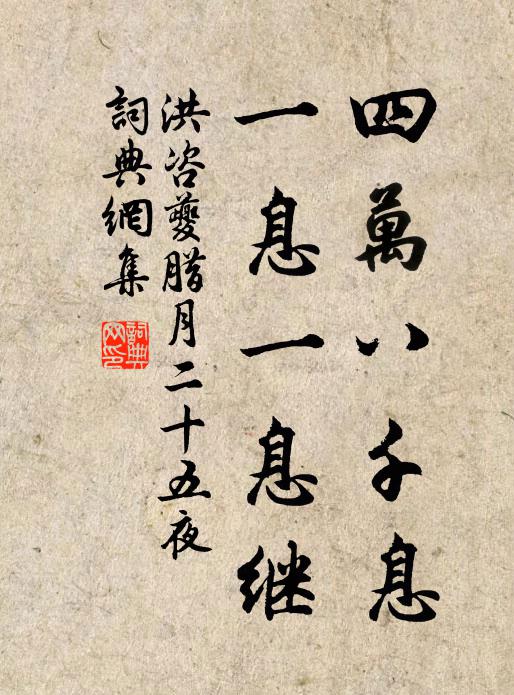 四萬八千息
一息一息继
洪咨夔腊月二十五夜
詞典網集
詞典网印